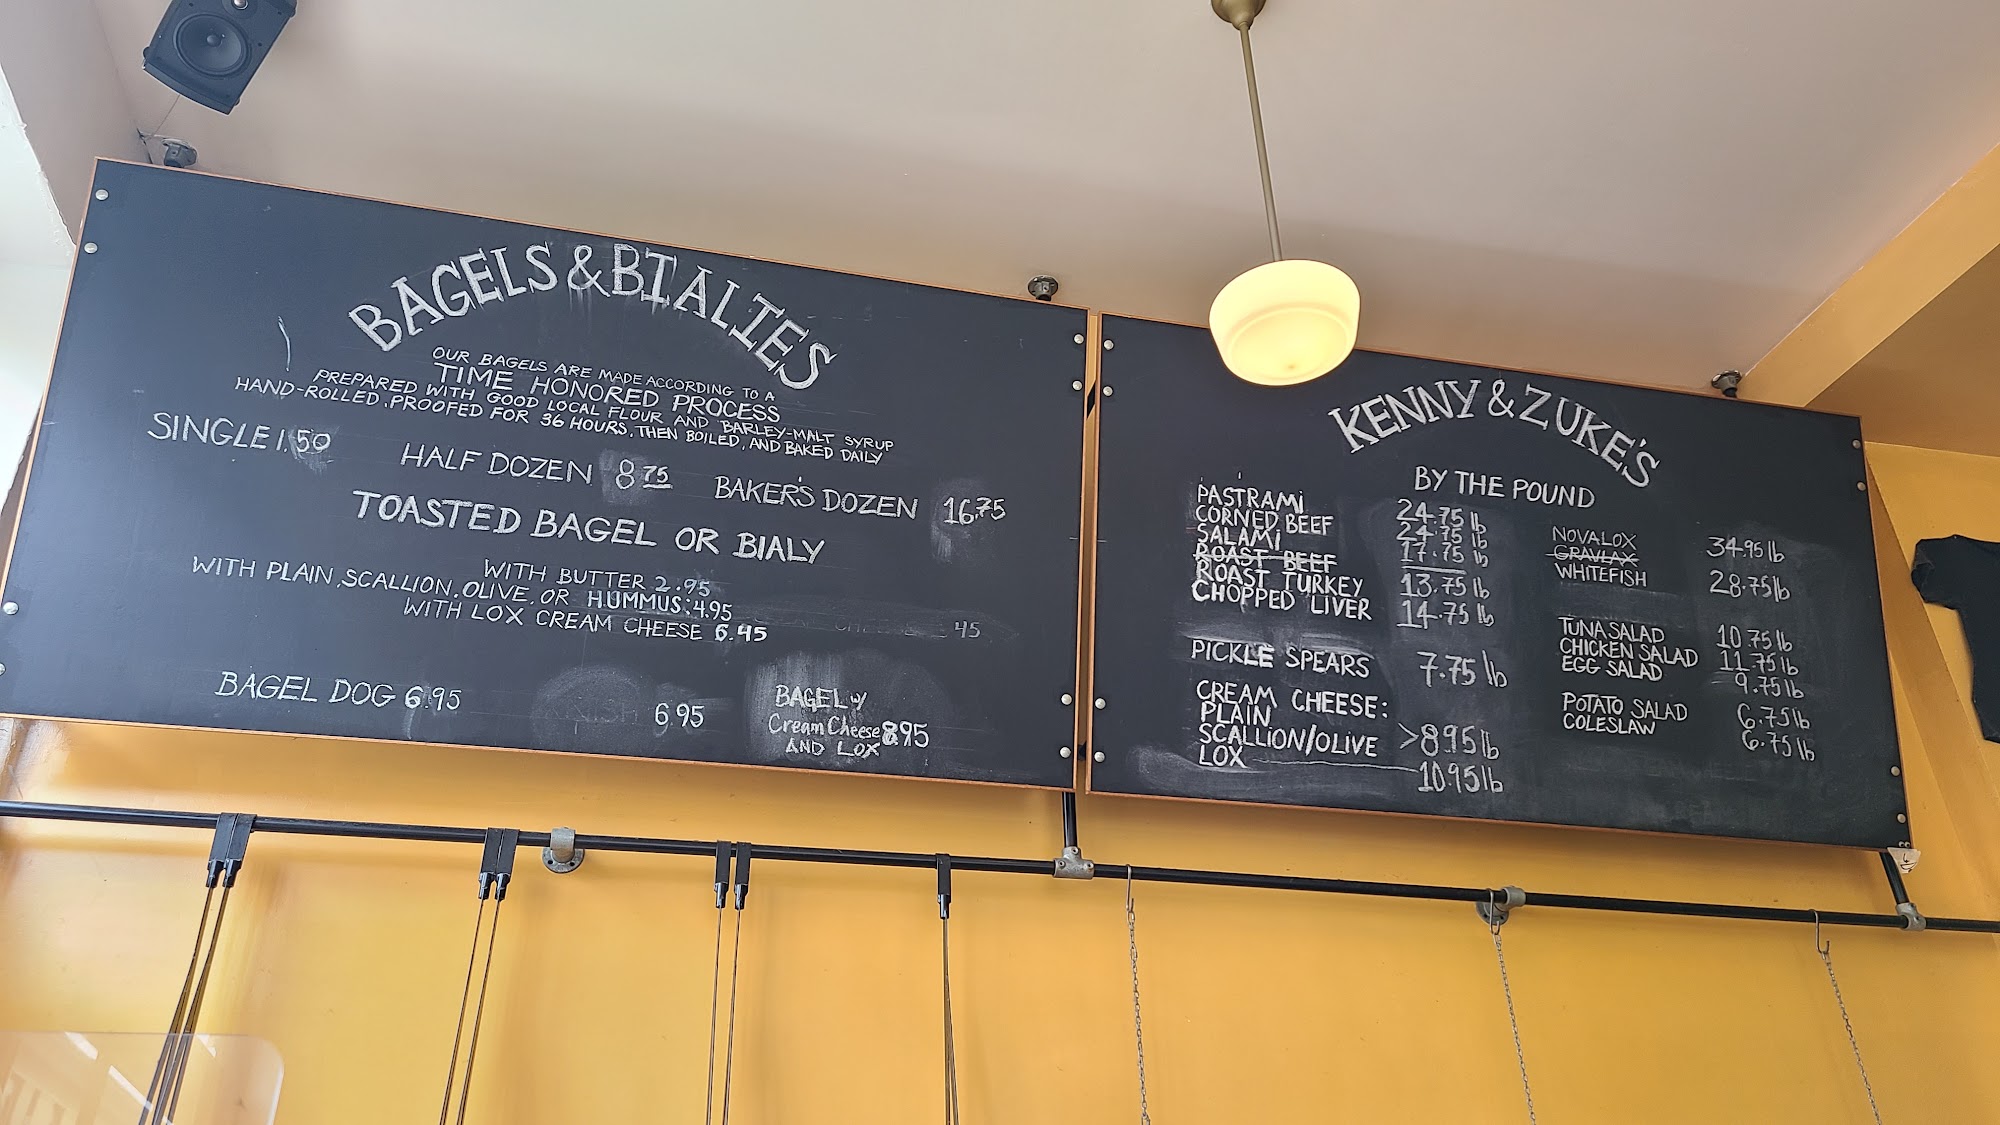 BAGELS & BIALIES
OUR BAGELS ARE MADE ACCORDING TO A
TIME HONORED PROCESS
PREPARED WITH GOOD LOCAL FLOUR AND BARLEY-MALT SYRUP
HAND-ROLLED, PROOFED FOR 36 HOURS, THEN BOILED, AND BAKED DAILY
SINGLE 1.50
HALF DOZEN 8 75
BAKER'S DOZEN 16.75
TOASTED BAGEL OR BIALY
WITH BUTTER 2.95
WITH PLAIN, SCALLION, OLIVE, OR HUMMUS: 4.95
WITH LOX CREAM CHEESE 6.45
45
BAGEL DOG 6.95
6.95
BAGEL W/
Cream Cheese 8.95
AND LOX
KENNY & ZUKE'S
BY THE POUND
PASTRAMI 24.75 lb
CORNED BEEF 24.75 lb
SALAMI 17.75 lb
ROAST BEEF
ROAST TURKEY 13.75 lb
CHOPPED LIVER 14.75 lb
PICKLE SPEARS 7.75 lb
CREAM CHEESE:
PLAIN
SCALLION/OLIVE >8.95 lb
LOX 10.95 lb
NOVA LOX 34.95 lb
GRAVLAX
WHITEFISH 28.75 lb
TUNA SALAD 10.75 lb
CHICKEN SALAD 11.75 lb
EGG SALAD 9.75 lb
POTATO SALAD 6.75 lb
COLESLAW 6.75 lb